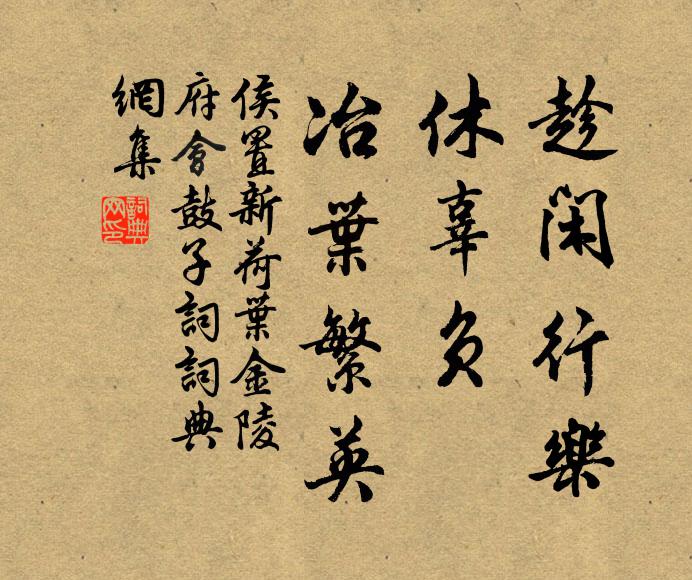 趁閑行樂
休辜負
冶葉繁英
侯置新荷葉金陵
府會鼓子詞詞典
網集
詞典網印